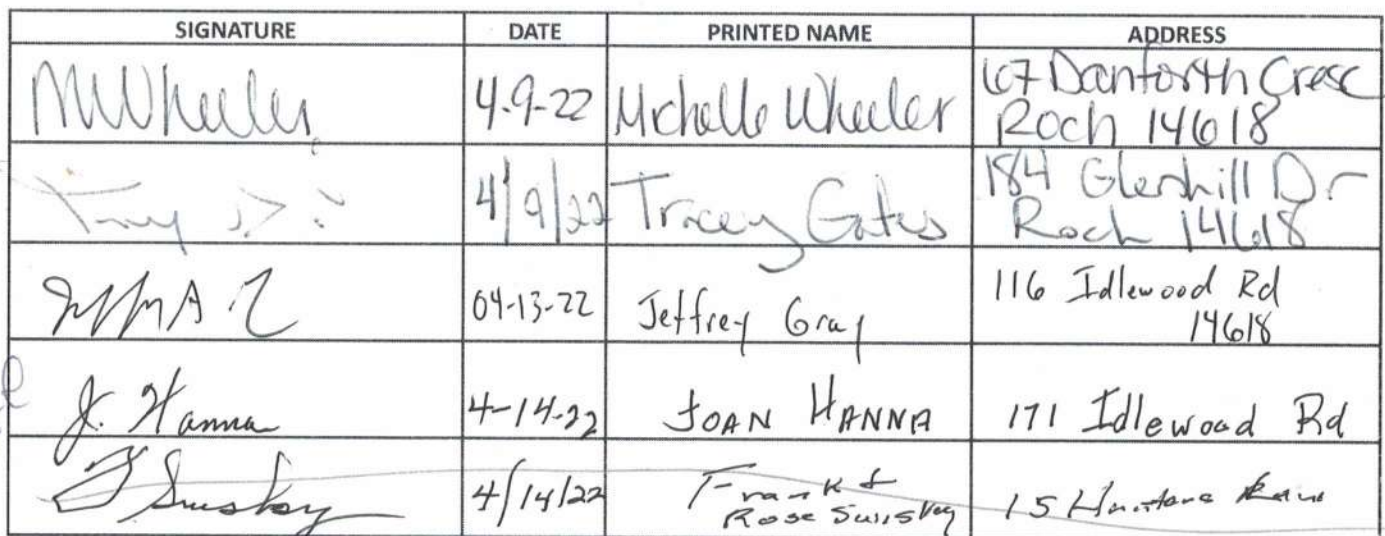 SIGNATURE DATE PRINTED NAME ADDRESS
MWheeler 4-9-22 Michelle Wheeler 67 Danforth Cresc
Roch 14618
4/9/22 Tracey Gates 184 Glenhill Dr
Roch 14618
04-13-22 Jeffrey Gray 116 Idlewood Rd
14618
J. Hanna 4-14-22 JOAN HANNA 171 Idlewood Rd
4/14/22 Frank &
Rose 15